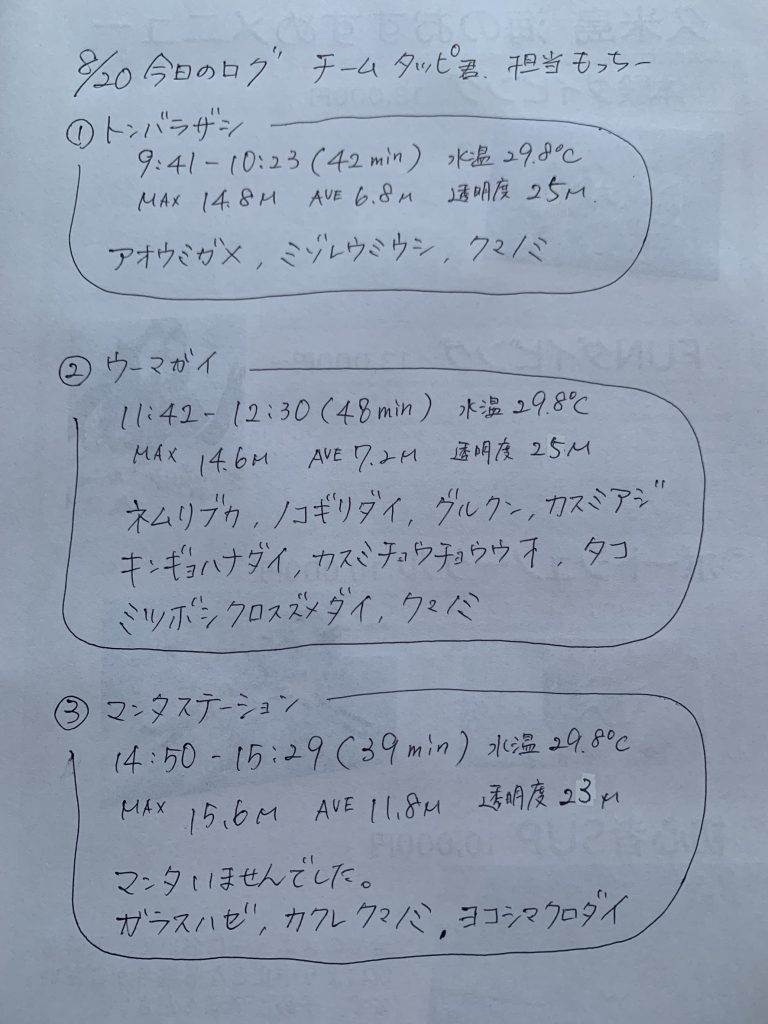 8/20 今日のログ チーム タッピ君. 担当 もっちー
① トンバラザシ
9:41 - 10:23 (42min) 水温 29.8℃
MAX 14.8M AVE 6.8M 透明度 25M.
アオウミガメ, ミゾレウミウシ, クマノミ
② ウーマガイ
11:42 - 12:30 (48min) 水温 29.8℃
MAX 14.6M AVE 7.2M 透明度 25M
ネムリブカ, ノコギリダイ, グルクン, カスミアジ
キンギョハナダイ, カスミチョウチョウウオ, タコ
ミツボシクロスズメダイ, クマノミ
③ マンタステーション
14:50 - 15:29 (39min) 水温 29.8℃
MAX 15.6M AVE 11.8M 透明度 23M
マンタいませんでした。
ガラスハゼ, カクレクマノミ, ヨコシマクロダイ